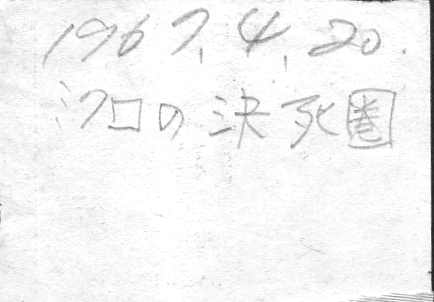 1967.4.20.
ミクロの決死圏